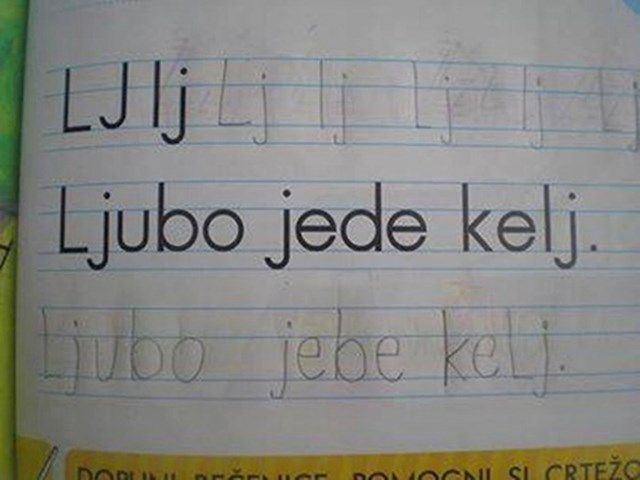 LJ lj Lj lj Lj lj Lj
Ljubo jede kelj.
Ljubo jebe keLj.
DOPUNI REČENICE. POMOGNI SI CRTEŽO